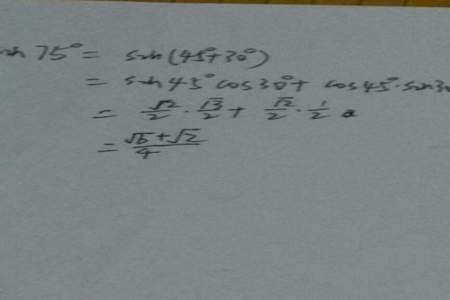 sin 75° = sin(45°+30°)
= sin45°cos30°+ cos45°·sin30
= √2/2 · √3/2 + √2/2 · 1/2
= √6+√2/4